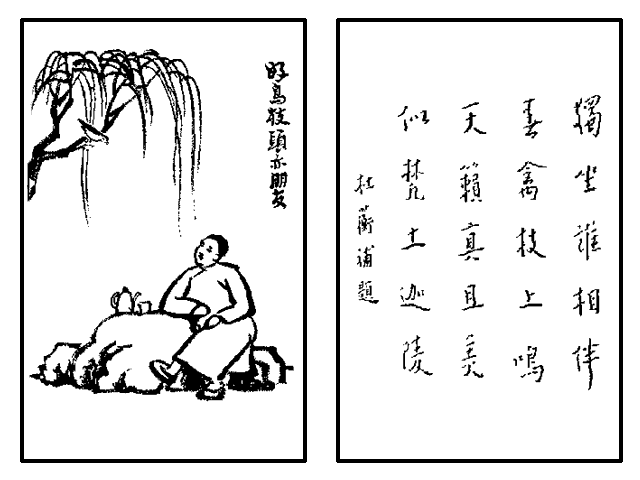 好鳥枝頭亦朋友
獨坐誰相伴
春禽枝上鳴
天籟真且美
似梵土迦陵
杜蘅補題